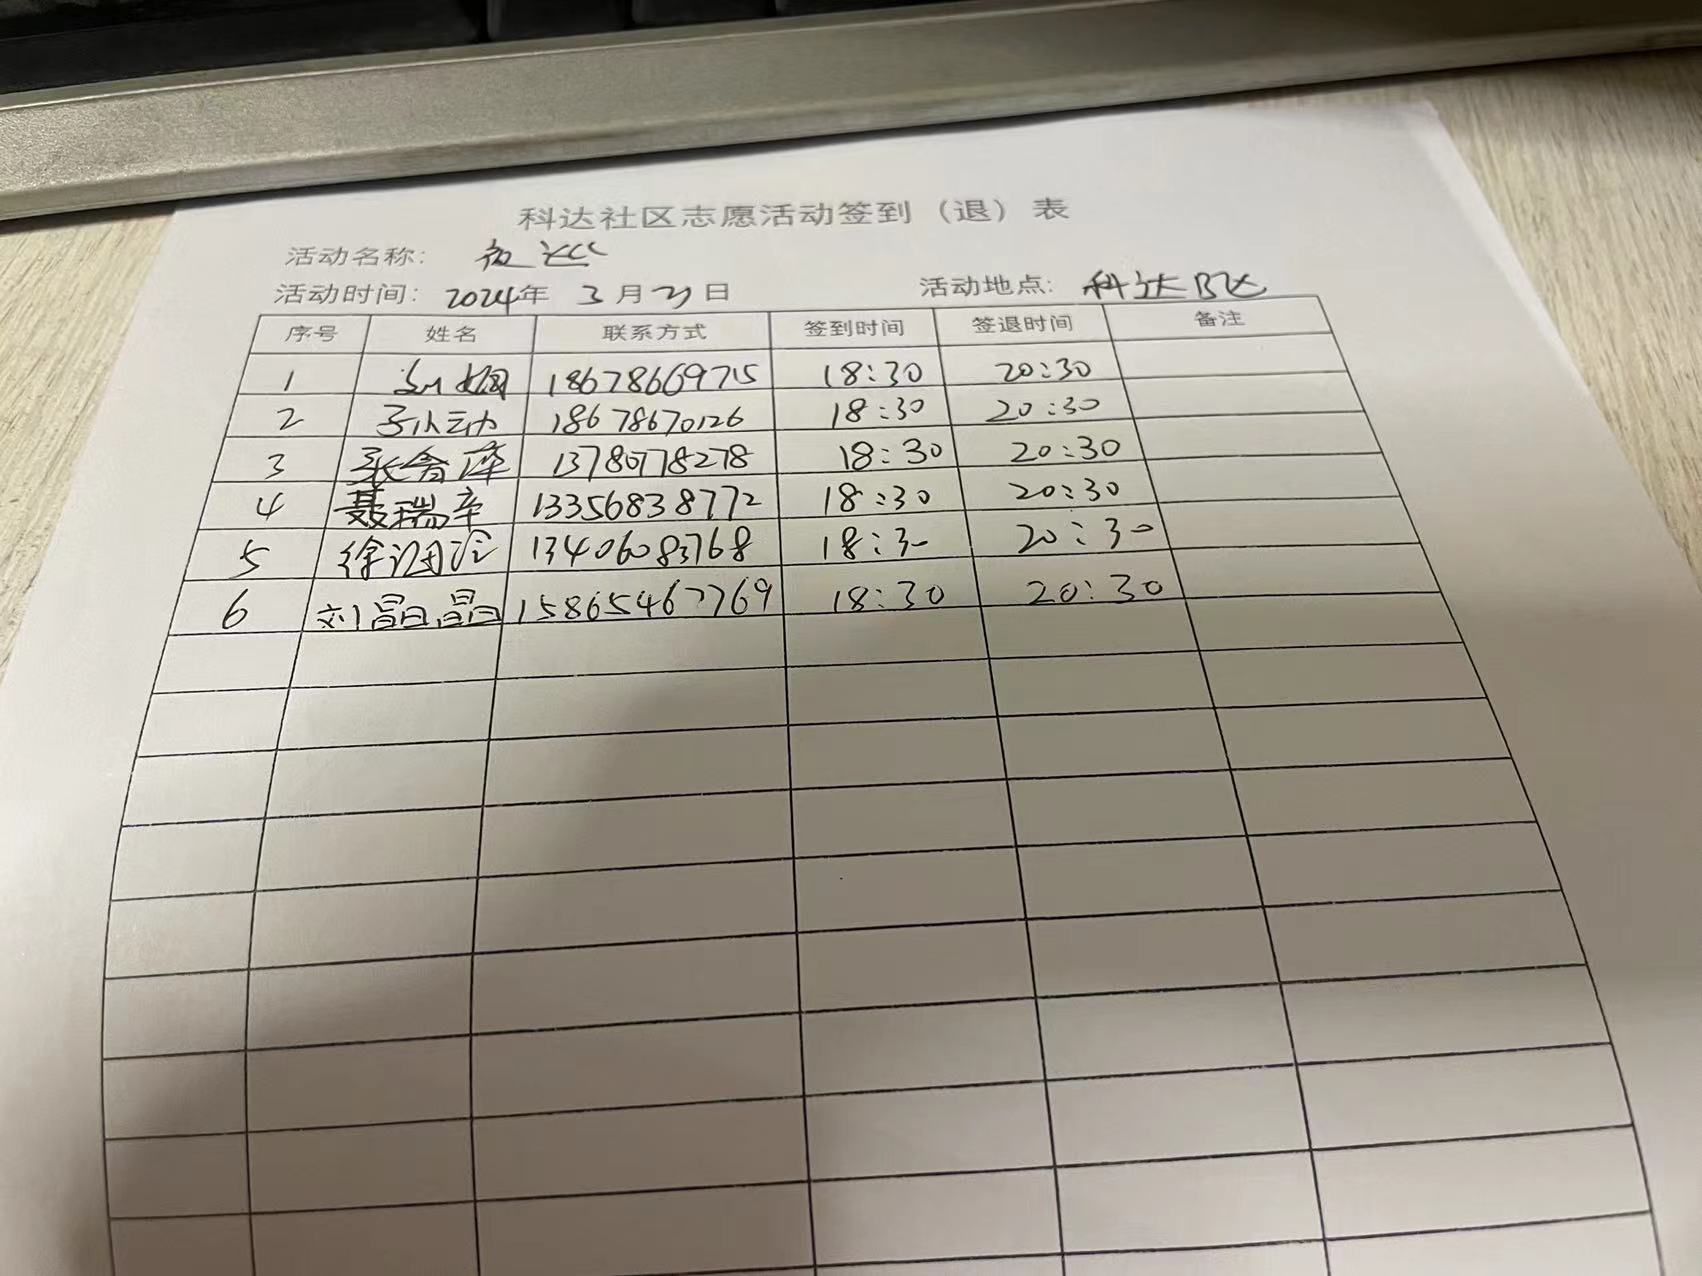 科达社区志愿活动签到（退）表
活动名称： 夜巡
活动时间：2024年 3月21日 活动地点：科达B区
序号 姓名 联系方式 签到时间 签退时间 备注
1 18678669715 18:30 20:30
2 18678670126 18:30 20:30
3 张 13780778278 18:30 20:30
4 聂瑞幸 13356838772 18:30 20:30
5 徐 13406083768 18:30 20:30
6 刘晶晶 15865467769 18:30 20:30